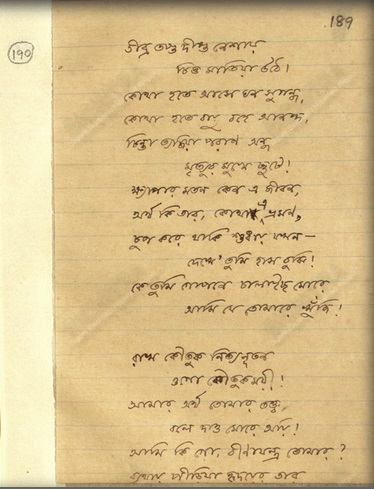 189
190
তীব্র তপ্ত দীপ্ত নেশায়
চিত্ত মাতিয়া উঠে!
কোথা হতে আসে ঘন সুগন্ধ,
কোথা হতে বায়ু বহে আনন্দ,
চিন্তা ত্যজিয়া পরাণ অন্ধ
মৃত্যুর মুখে ছুটে!
ক্ষ্যাপার মতন কেন এ জীবন,
অর্থ কি তার, কোথা এ ভ্রমণ,
চুপ করে থাকি শুধায় যখন—
দেখে' তুমি হাস বুঝি!
কে তুমি গোপনে চালাইছ মোরে
আমি যে তোমারে খুঁজি!
রাখ কৌতুক নিত্যনূতন
ওগো কৌতুকময়ী!
আমার অর্থ তোমার তত্ত্ব,
বলে দাও মোরে অয়ি!
আমি কি গো বীণাযন্ত্র তোমার?
ব্যথায় পীড়িয়া হৃদয়ের তার